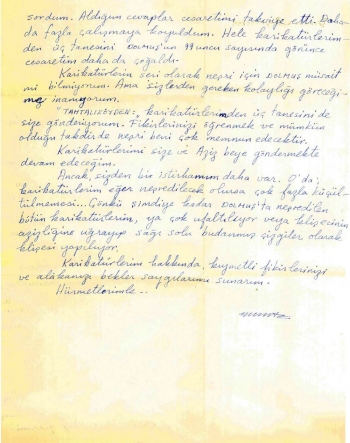 sordum. Aldığım cevaplar cesaretimi takviye etti. Daha-
da fazla çalışmaya koyuldum. Hele karikatürlerim-
den üç tanesini DOLMUŞ'un 99 uncu sayısında görünce
cesaretim daha da çoğaldı.
Karikatürlerin seri olarak neşri için DOLMUŞ müsait
mi bilmiyorum. Ama sizlerden gereken kolaylığı göreceği-
me inanıyorum.
"TAHTALIKÖYDEN", karikatürlerimden üç tanesini de
size gönderiyorum. Fikirlerinizi öğrenmek ve mümkün
olduğu takdirde neşri beni çok memnun edecektir.
Karikatürlerimi size ve Aziz beye göndermekte
devam edeceğim.
Ancak, sizden bir istirhamım daha var. O'da;
karikatürlerim eğer neşredilecek olursa çok fazla küçül-
tülmemesi... Çünkü şimdiye kadar DOLMUŞ'ta neşredilen
bütün karikatürlerim, ya çok ufaltılıyor veya klişecinin
azizliğine uğrayıp sağı solu budanmış çizgiler olarak
klişesi yapılıyor.
Karikatürlerim hakkında, kıymetli fikirlerinizi
ve alâkanızı bekler saygılarımı sunarım.
Hürmetlerimle..